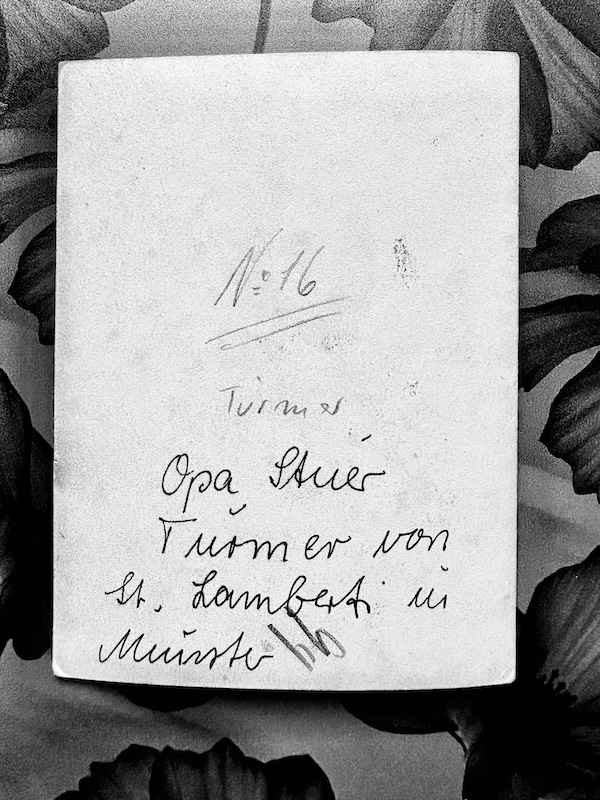 No 16
Türmer
Opa Stüer
Türmer von
St. Lamberti in
Münster